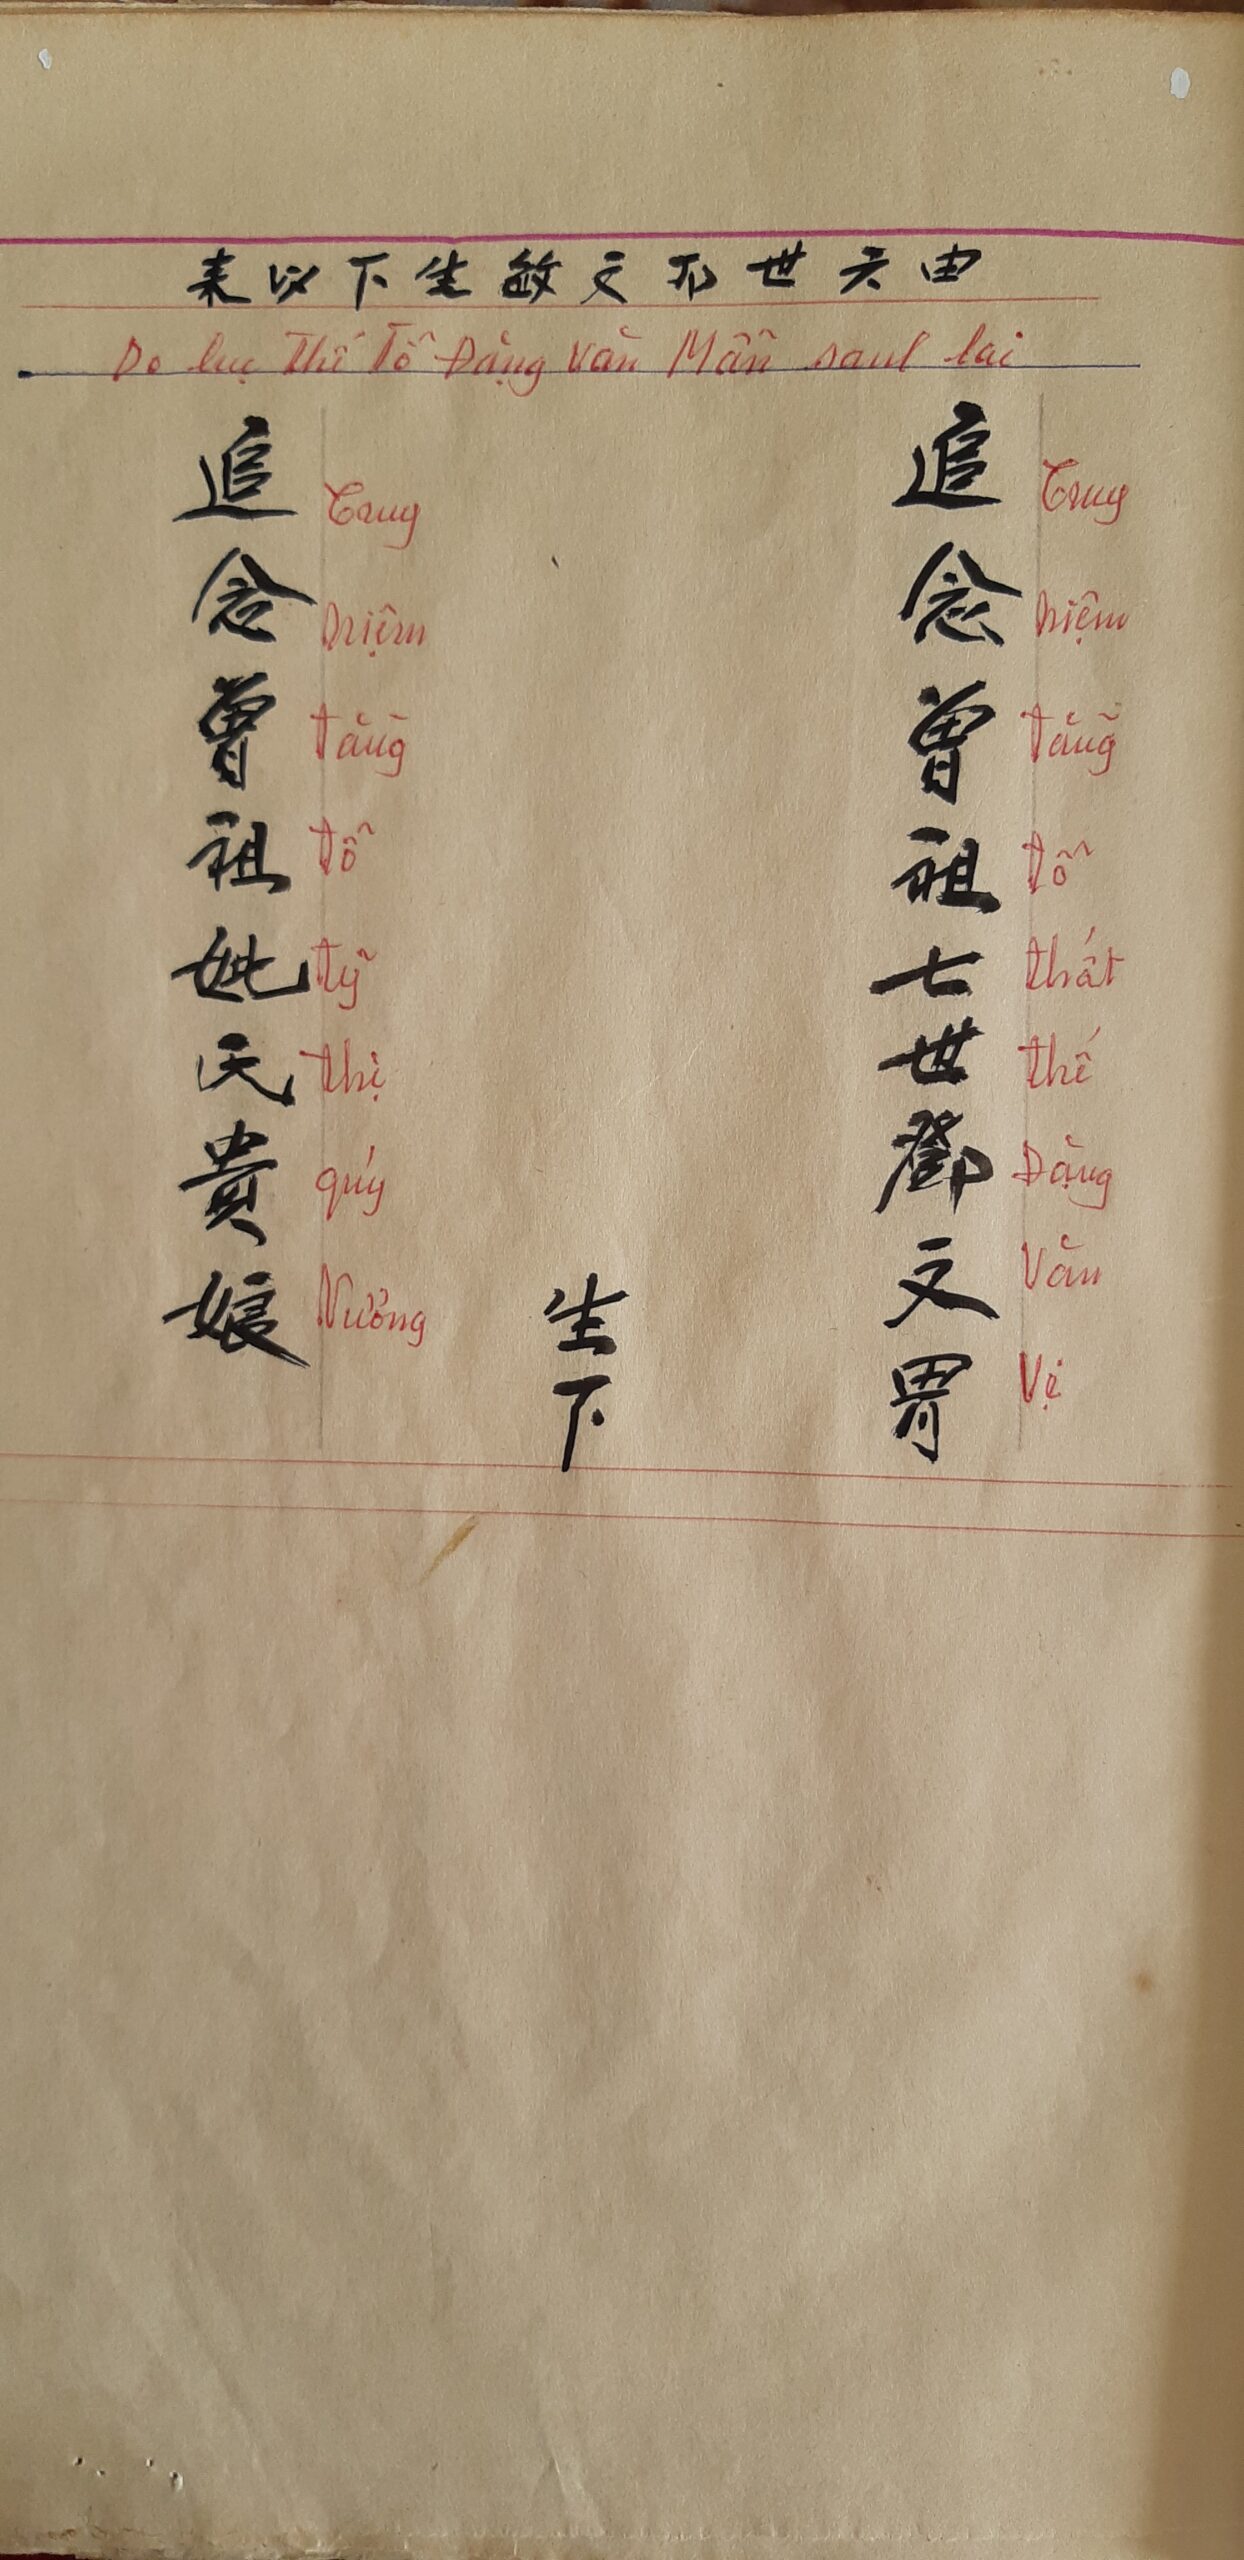 由六世祖文敏生下以来
Do lục Thế Tổ Đặng Văn Mẫn saul lai
追念曾祖七世鄧文胃
Truy niệm tằng tổ thất thế Đặng Văn Vị
生下
追念曾祖妣氏貴娘
Truy niệm tằng tổ tỷ thị quý Nương